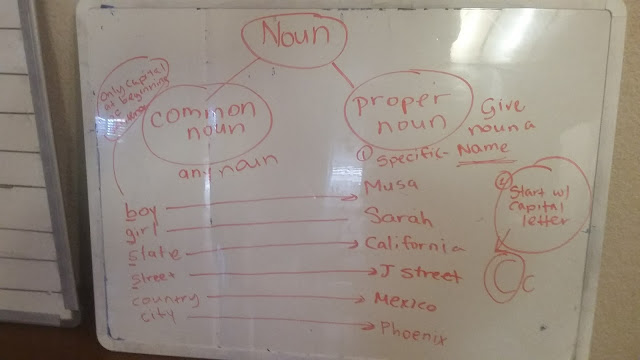 Noun
only capital
at beginning
common
noun
any noun
proper
noun
Give
noun a
① Specific - Name
② Start w/
capital
letter
C c
boy Musa
girl Sarah
state California
street J street
country Mexico
city Phoenix